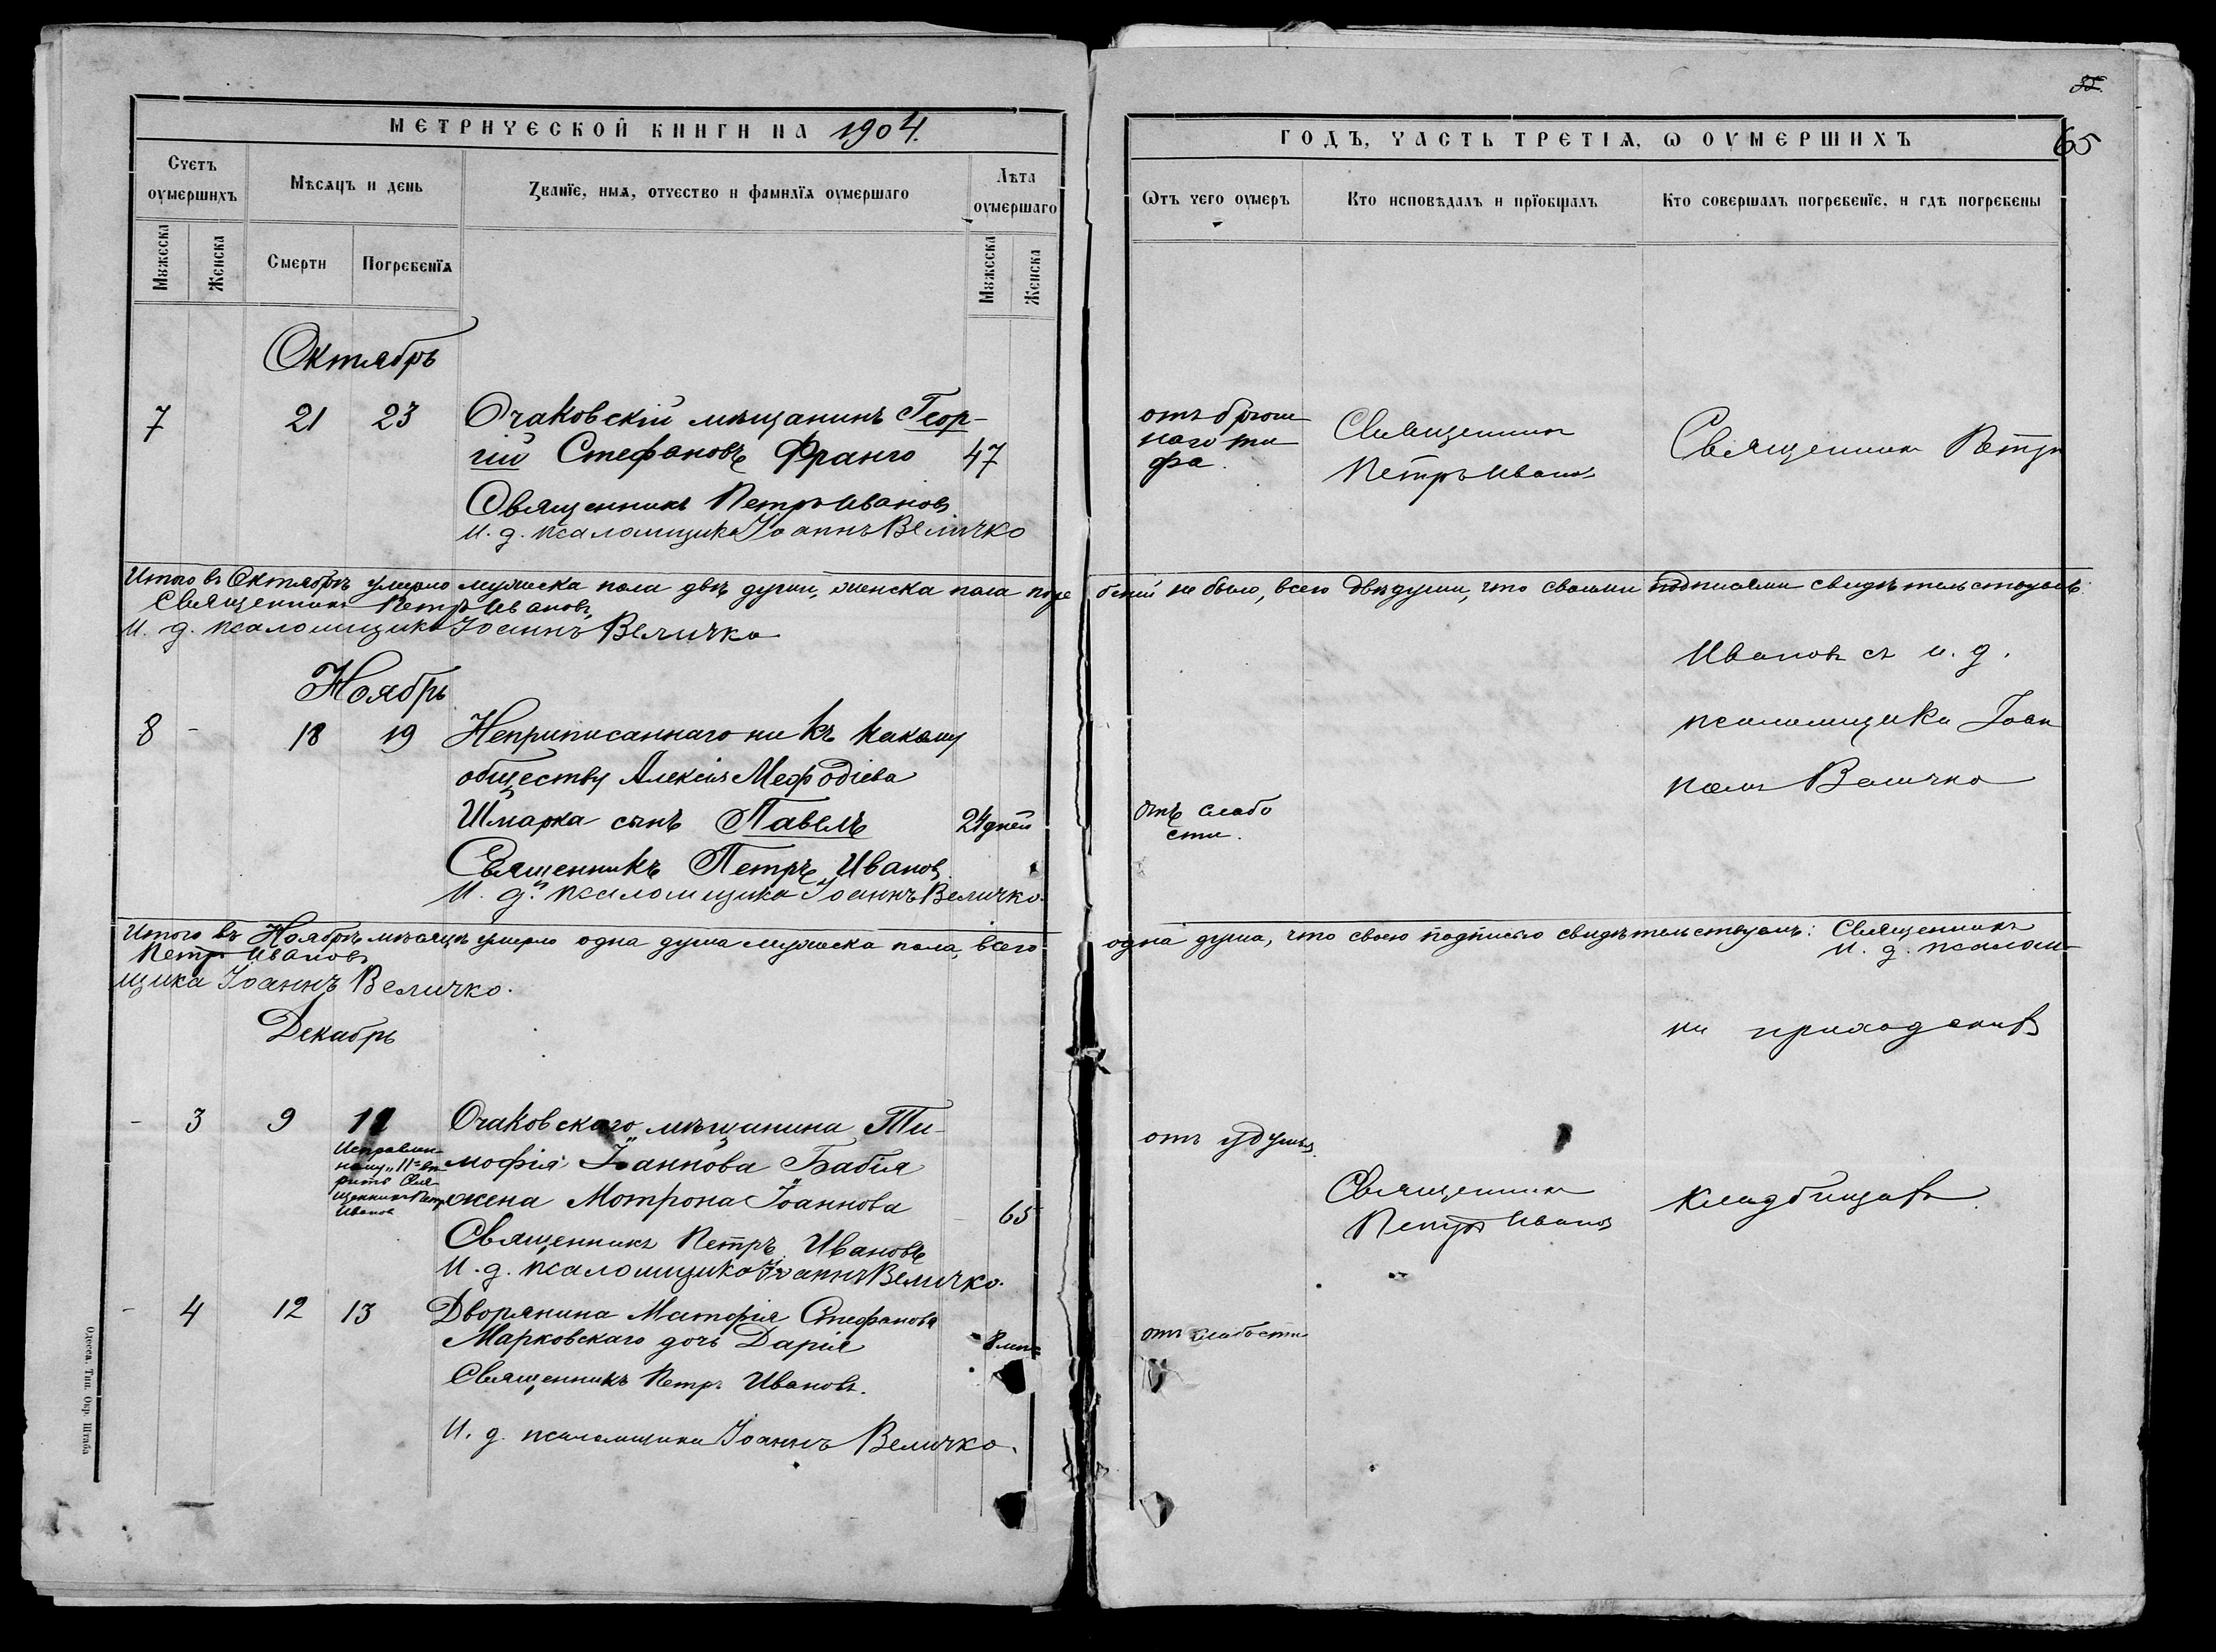 МЕТРИЧЕСКОЙ КНИГИ НА 1904.
Счетъ оумершихъ
Мѣсяцъ и день
Званїе, имя, отчество и фамилїя оумершаго
Лѣта оумершаго
Мужеска
Женска
Смерти
Погребенїя
Мужеска
Женска
Октябрь
7 21 23 Очаковскій мѣщанинъ Геор-
гій Стефановъ Франго 47
Священникъ Петръ Ивановъ
И. д. псаломщика Іоаннъ Величко
Итого въ Октябрѣ умерло мужеска пола двѣ души, женска пола погре
Священникъ Петръ Ивановъ
И. д. псаломщика Іоаннъ Величко
Ноябрь
8 - 18 19 Неприписаннаго ни къ какому
обществу Алексія Меѳодіева
Шмарка сынъ Павелъ 24 дней
Священникъ Петръ Ивановъ
И. д. псаломщика Іоаннъ Величко.
Итого въ Ноябрѣ мѣсяцѣ умерло одна душа мужеска пола, всего
Петръ Ивановъ
щика Іоаннъ Величко.
Декабрь
- 3 9 11 Очаковскаго мѣщанина Ти-
мофія Іоаннова Бабія
жена Мотрона Іоаннова 65
Исправлен-
ному „11" вѣ-
рить Свя-
щенникъ Петръ
Ивановъ
Священникъ Петръ Ивановъ
И. д. псаломщика Іоаннъ Величко.
- 4 12 13 Дворянина Матфія Стефанова
Марковскаго дочь Дарія 8
Священникъ Петръ Ивановъ.
И. д. псаломщика Іоаннъ Величко.
Одесса. Тип. Окр. Штаба
65
ГОДЪ, ЧАСТЬ ТРЕТІЯ, Ѡ ОУМЕРШИХЪ
Ѿтъ чего оумеръ
Кто исповѣдалъ и прїобщалъ
Кто совершалъ погребенїе, и гдѣ погребены
отъ брюш
наго ти
фа.
Священникъ
Петръ Ивановъ
Священникъ Петръ
беній не было, всего двѣ души, что своими подписями свидѣтельствуемъ:
Ивановъ съ и. д.
псаломщика Іоан
номъ Величко
отъ слабо
сти.
одна душа, что своею подписью свидѣтельствуемъ: Священникъ
И. д. псалом-
на приходскомъ
отъ удушья.
Священникъ
Петръ Ивановъ
кладбищѣ.
отъ слабости